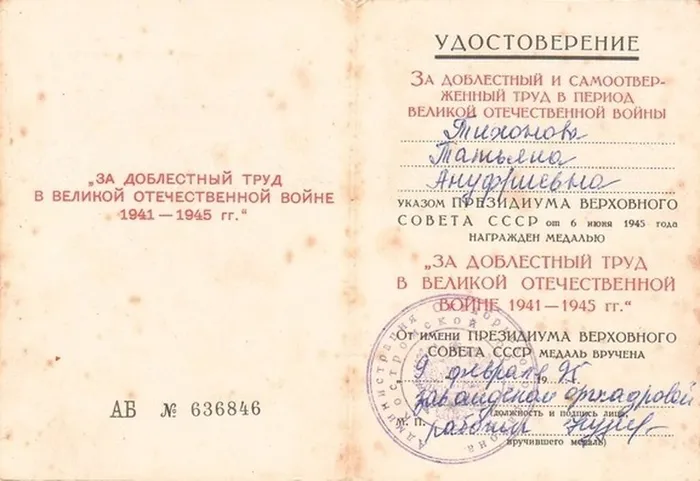 „ЗА ДОБЛЕСТНЫЙ ТРУД
В ВЕЛИКОЙ ОТЕЧЕСТВЕННОЙ ВОЙНЕ
1941 — 1945 гг.“
АБ № 636846
УДОСТОВЕРЕНИЕ
ЗА ДОБЛЕСТНЫЙ И САМООТВЕР-
ЖЕННЫЙ ТРУД В ПЕРИОД
ВЕЛИКОЙ ОТЕЧЕСТВЕННОЙ ВОЙНЫ
Тихонова
Татьяна
Ануфриевна
УКАЗОМ ПРЕЗИДИУМА ВЕРХОВНОГО
СОВЕТА СССР от 6 июня 1945 года
НАГРАЖДЕН МЕДАЛЬЮ
„ЗА ДОБЛЕСТНЫЙ ТРУД
В ВЕЛИКОЙ ОТЕЧЕСТВЕННОЙ
ВОЙНЕ 1941 — 1945 гг.“
От имени ПРЕЗИДИУМА ВЕРХОВНОГО
СОВЕТА СССР МЕДАЛЬ ВРУЧЕНА
9 февраля 1995
зав отделом оргкадровой
(должность и подпись лица,
М. П. работы
вручившего медаль)
администрация